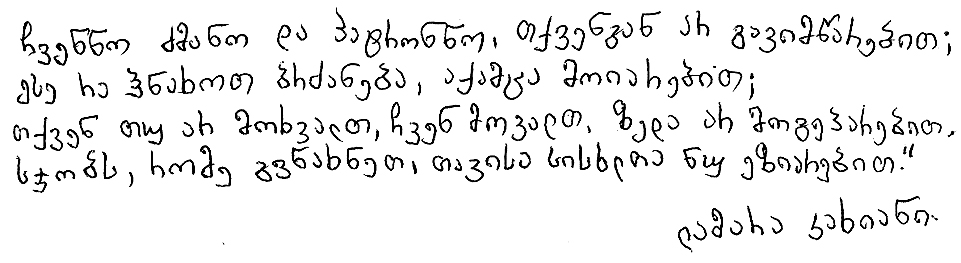 ჩვენნო ძმანო და პატრონნო, თქვენგან არ გავიმწარებით;
ესე რა ჰნახოთ ბრძანება, აქამცა მოიარებით;
თქვენ თუ არ მოხვალთ, ჩვენ მოვალთ, ზედა არ მოგეპარებით,
სჯობს, რომე გვნახნეთ, თავისა სისხლთა ნუ ეზიარებით."
თამარა კახიანი.